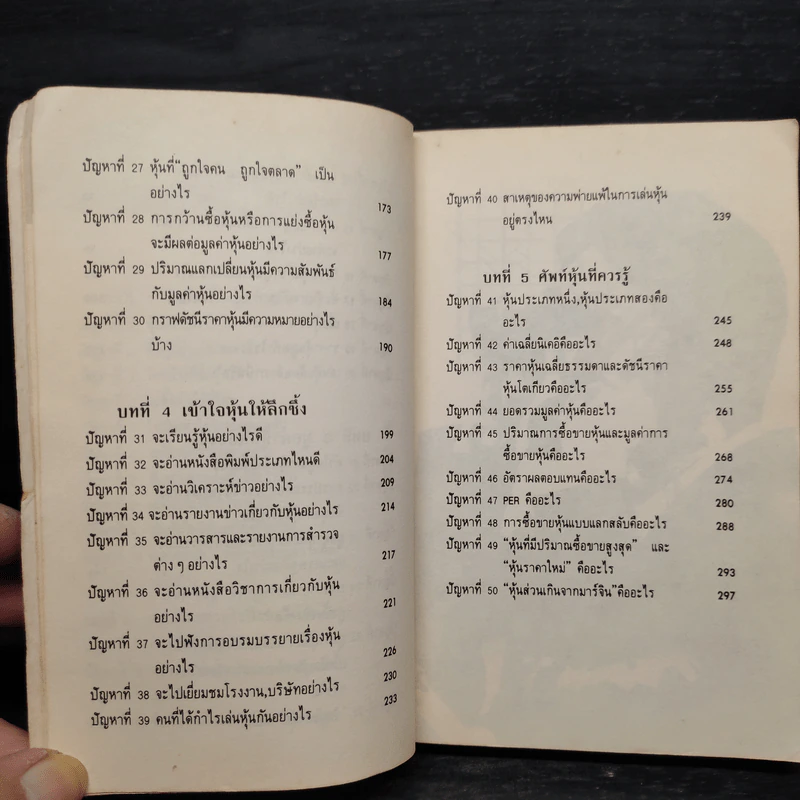 ปัญหาที่ 27 หุ้นที่“ถูกใจคน ถูกใจตลาด” เป็น
อย่างไร 173
ปัญหาที่ 28 การกว้านซื้อหุ้นหรือการแย่งซื้อหุ้น
จะมีผลต่อมูลค่าหุ้นอย่างไร 177
ปัญหาที่ 29 ปริมาณแลกเปลี่ยนหุ้นมีความสัมพันธ์
กับมูลค่าหุ้นอย่างไร 184
ปัญหาที่ 30 กราฟดัชนีราคาหุ้นมีความหมายอย่างไร
บ้าง 190
บทที่ 4 เข้าใจหุ้นให้ลึกซึ้ง
ปัญหาที่ 31 จะเรียนรู้หุ้นอย่างไรดี 199
ปัญหาที่ 32 จะอ่านหนังสือพิมพ์ประเภทไหนดี 204
ปัญหาที่ 33 จะอ่านวิเคราะห์ข่าวอย่างไร 209
ปัญหาที่ 34 จะอ่านรายงานข่าวเกี่ยวกับหุ้นอย่างไร 214
ปัญหาที่ 35 จะอ่านวารสารและรายงานการสำรวจ
ต่าง ๆ อย่างไร 217
ปัญหาที่ 36 จะอ่านหนังสือวิชาการเกี่ยวกับหุ้น
อย่างไร 221
ปัญหาที่ 37 จะไปฟังการอบรมบรรยายเรื่องหุ้น
อย่างไร 226
ปัญหาที่ 38 จะไปเยี่ยมชมโรงงาน,บริษัทอย่างไร 230
ปัญหาที่ 39 คนที่ได้กำไรเล่นหุ้นกันอย่างไร 233
ปัญหาที่ 40 สาเหตุของความพ่ายแพ้ในการเล่นหุ้น
อยู่ตรงไหน 239
บทที่ 5 ศัพท์หุ้นที่ควรรู้
ปัญหาที่ 41 หุ้นประเภทหนึ่ง,หุ้นประเภทสองคือ
อะไร 245
ปัญหาที่ 42 ค่าเฉลี่ยนิเคอิคืออะไร 248
ปัญหาที่ 43 ราคาหุ้นเฉลี่ยธรรมดาและดัชนีราคา
หุ้นโตเกียวคืออะไร 255
ปัญหาที่ 44 ยอดรวมมูลค่าหุ้นคืออะไร 261
ปัญหาที่ 45 ปริมาณการซื้อขายหุ้นและมูลค่าการ
ซื้อขายหุ้นคืออะไร 268
ปัญหาที่ 46 อัตราผลตอบแทนคืออะไร 274
ปัญหาที่ 47 PER คืออะไร 280
ปัญหาที่ 48 การซื้อขายหุ้นแบบแลกสลับคืออะไร 288
ปัญหาที่ 49 “หุ้นที่มีปริมาณซื้อขายสูงสุด” และ
“หุ้นราคาใหม่” คืออะไร 293
ปัญหาที่ 50 “หุ้นส่วนเกินจากมาร์จิน”คืออะไร 297